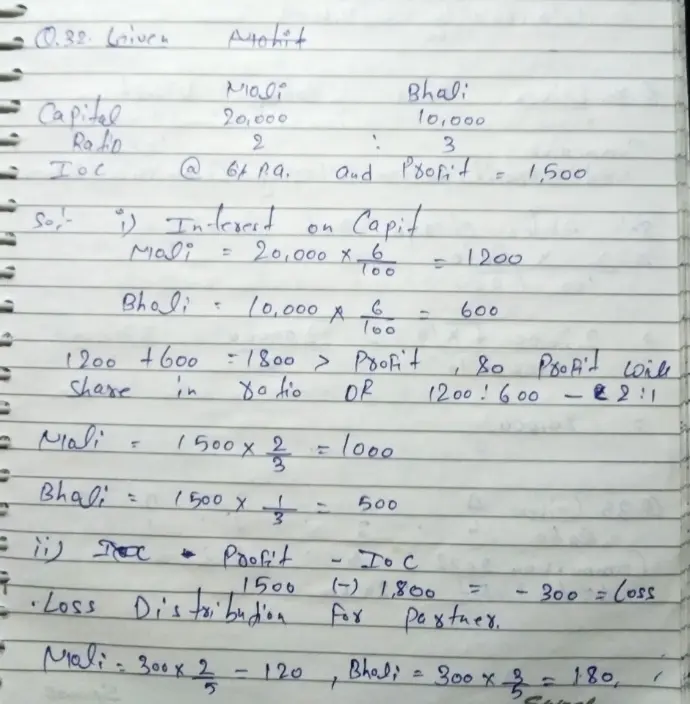 Q.32. Given Mohit
Mali Bhali
Capital 20,000 10,000
Ratio 2 : 3
IOC @ 6% P.A. and Profit = 1,500
So,:- i) Interest on Capit
Mali = 20,000 × 6/100 = 1200
Bhali = 10,000 × 6/100 = 600
1200 + 600 = 1800 > Profit, so Profit will
share in ratio OF 1200:600 - 2:1
Mali = 1500 × 2/3 = 1000
Bhali = 1500 × 1/3 = 500
ii) Profit - IOC
1500 (-) 1,800 = - 300 = Loss
• Loss Distribution For partner.
Mali = 300 × 2/5 - 120, Bhali = 300 × 3/5 = 180,